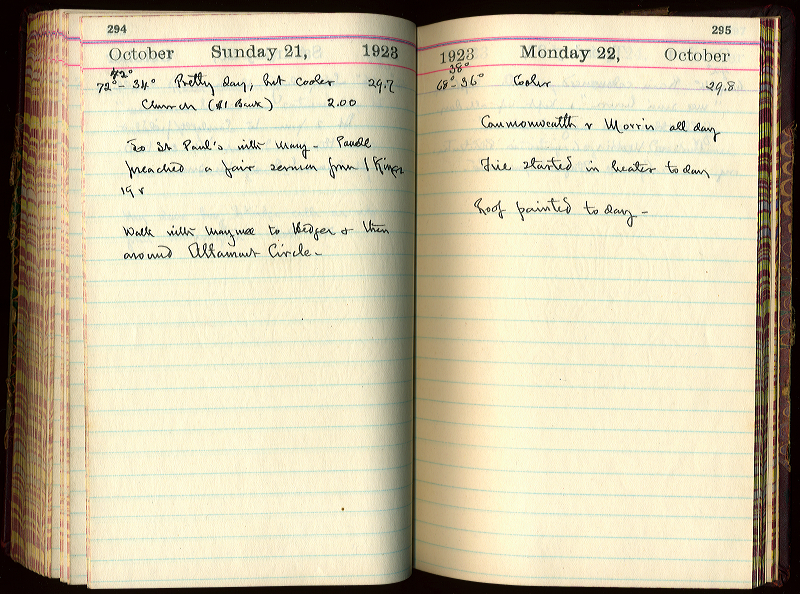 294
October Sunday 21, 1923
42°
72° - 34° Pretty day, but cooler 29.7
Church (A1 Bank) 2.00
To St Paul's with May - Pandel
preached a fair sermon from 1 Kings
19 v
Walk with Maymee to Hedges & then
around Altamont Circle -
295
1923 Monday 22, October
38°
68° - 36° Cooler 29.8
Commonwealth v Morris all day
Fire started in heater today
Roof painted to day -